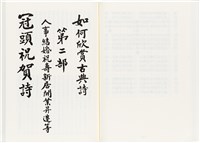 如何欣賞古典詩
第二部
人事結婚祝壽新居開業升遷等
冠頭祝賀詩